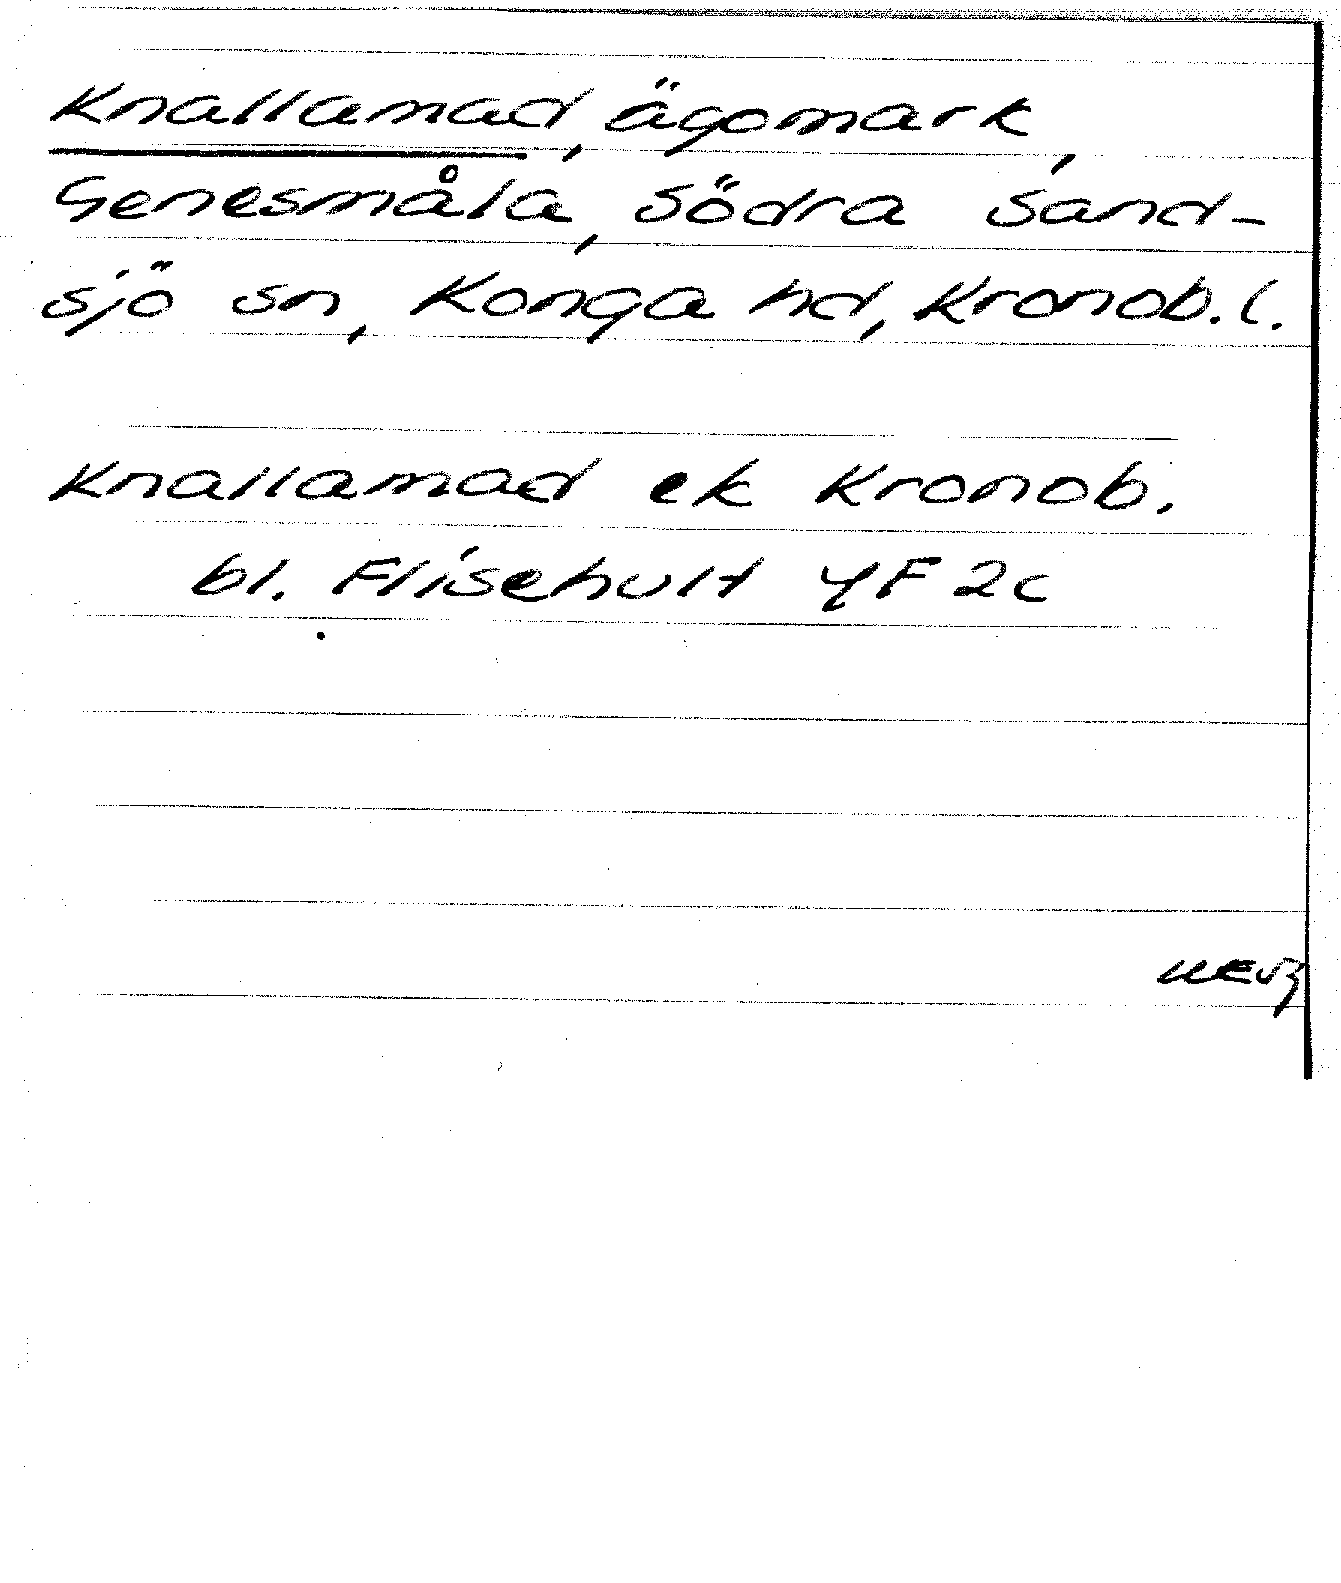 Knallamad, ägomark,
Genesmåla, Södra Sand-
sjö sn, Konga hd, Kronob. l.
Knallamad ek Kronob.
bl. Flisehult 4F 2c